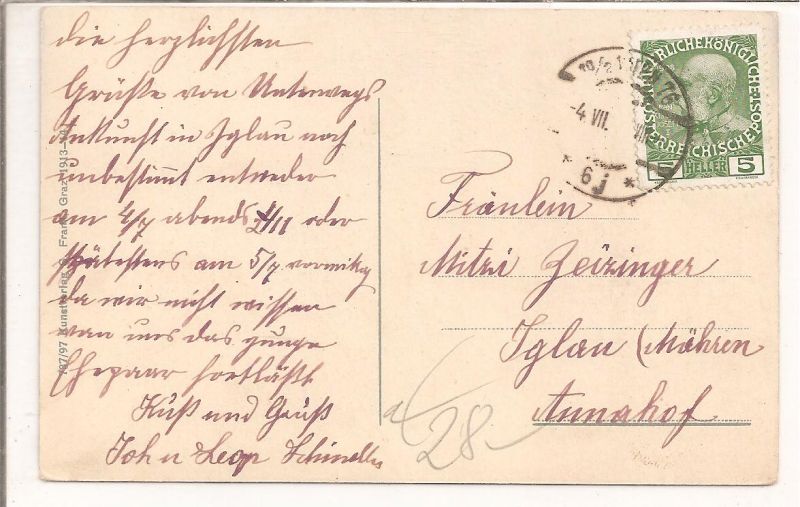 die herzlichsten
Grüße von Unterwegs
Ankunft in Iglau noch
unbestimmt entweder
am 4/7 abends 1/2 11 oder
spätestens am 5/7 vormittg
da wir nicht wissen
wan uns das junge
Ehepaar fortläßt.
Kuß und Gruß
John Leop
787/97 Kunstverlag Frank, Graz 1913
KAISERLICHEKÖNIGLICHE
ÖSTERREICHISCHEPOST
5 HELLER 5
WIEN 76
-4 VII.
* 6 *
Fräulein
Mitzi Zeizinger
Iglau (Mähren
Annahof
28